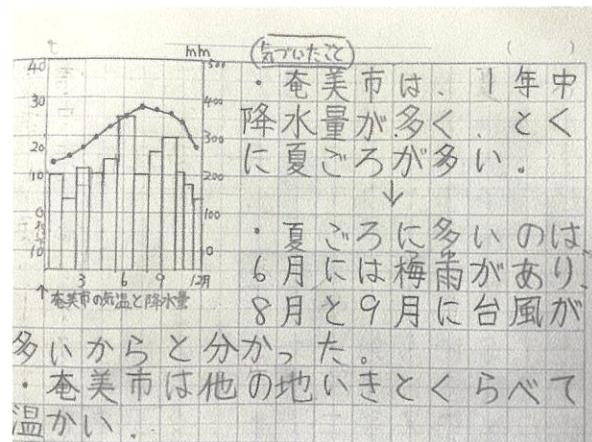 ℃
mm
40
30
20
10
0
10
500
400
300
200
100
0
3 6 9 12月
↑奄美市の気温と降水量
気づいたこと
( )
・奄美市は、1年中
降水量が多く、とく
に夏ごろが多い。
↓
・夏ごろに多いのは、
6月には梅雨があり、
8月と9月に台風が
多いからと分かった。
・奄美市は他の地いきとくらべて
温かい.